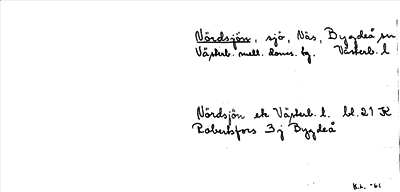 Nördsjön, sjö, Nås, Bygdeå sn
Västerb. mell. doms. hg. Västerb. l
Nördsjön ek Västerb. l. bl. 21 K
Robertsfors 3j Bygdeå
K.L. -61